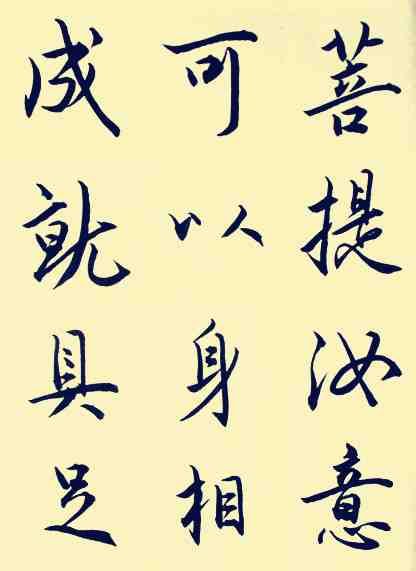 菩提汝意
可以身相
成就具足